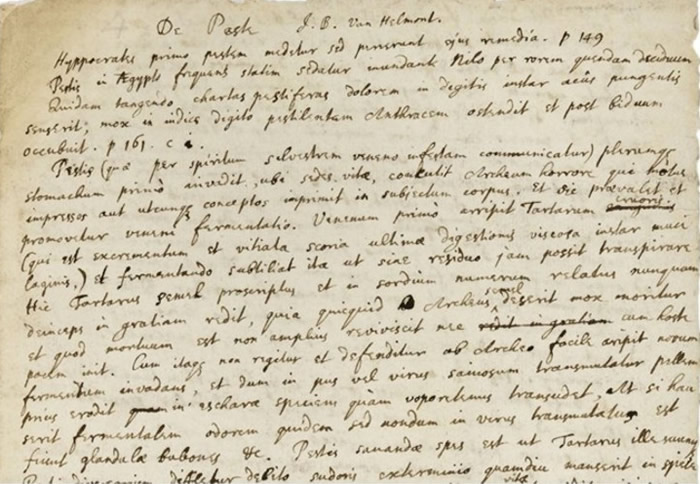 De Peste J. B. Van Helmont.
Hyppocrates primo pestem medetur sed perierunt ejus remedia. p 149
Pestis in Ægypto frequens statim sedatur inundante Nilo per rorem quendam deciduum
Quidam tangendo chartas pestiferas dolorem in digitis instar acûs pungentis
senserit, mox in indice digito pestilentem Anthracem ostendit et post biduum
occubuit. p 161. c
Pestis (quæ per spiritum silvestrem veneno infestam communicatur) plerumqꝫ
stomachum primo invadit, ubi sedes vitæ, concutit Archeum horrore qui motus
impressos aut utcunqꝫ conceptos imprimit in subjectum corpus. Et sic prævalet et
promovetur veneni fermentatio. Venenum primò arripit Tartarum sanguinis cruoris
(qui est excrementum et vitiata scoria ultimæ digestionis viscosa instar muci
laginis,) et fermentando subtiliat ita ut sine residuo jam possit transpirare
Hic Tartarus semel proscriptus et in sordium numerum relatus nunquam
deinceps in gratiam redit, quia quicquid Archeus semel deserit mox moritur
et quod mortuum est non amplius reviviscit nec redit in gratiam cum hoste
pacem init. Cum itaqꝫ non regitur et defenditur ab Archeo facile aripit novum
fermentum invadens, et dum in pus vel virus saniosum transmutatur pellem
prius erodit quam in escharæ speciem quam vaporetenus transudet. At si hau
serit fermentalem odorem quidem sed nondum in virus transmutatum est
fiunt glandulæ bubones &c. Pestis sanandæ spes est ut Tartarus ille
debito sudoris exterminio quamdiu manserit in specie
vitæ